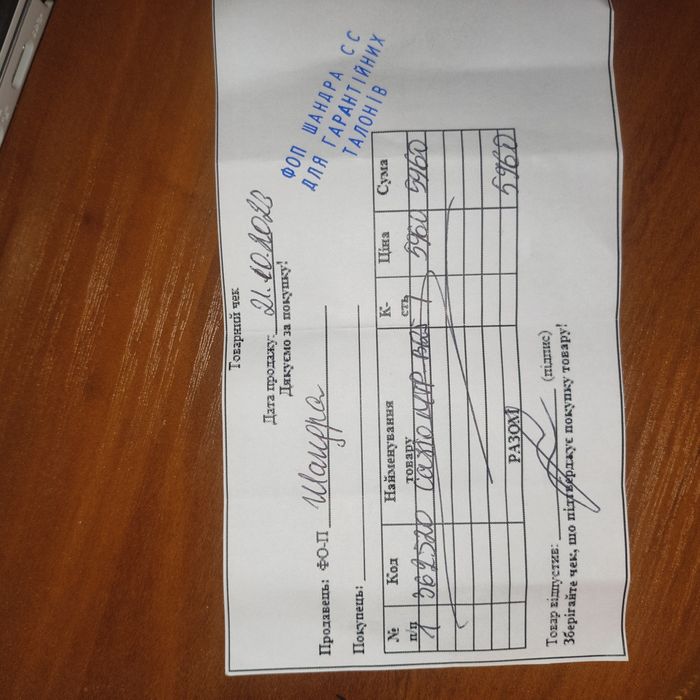 Товарний чек
Дата продажу: 21.10.2023
Дякуємо за покупку!
ФОП ШАНДРА С С
ДЛЯ ГАРАНТІЙНИХ
ТАЛОНІВ
Продавець: ФО-П Шандра
Покупець:
№ п/п Код Найменування товару К-сть Ціна Сума
1 362520 1 5960 5960
РАЗОМ 5960
Товар відпустив: (підпис)
Зберігайте чек, що підтверджує покупку товару!